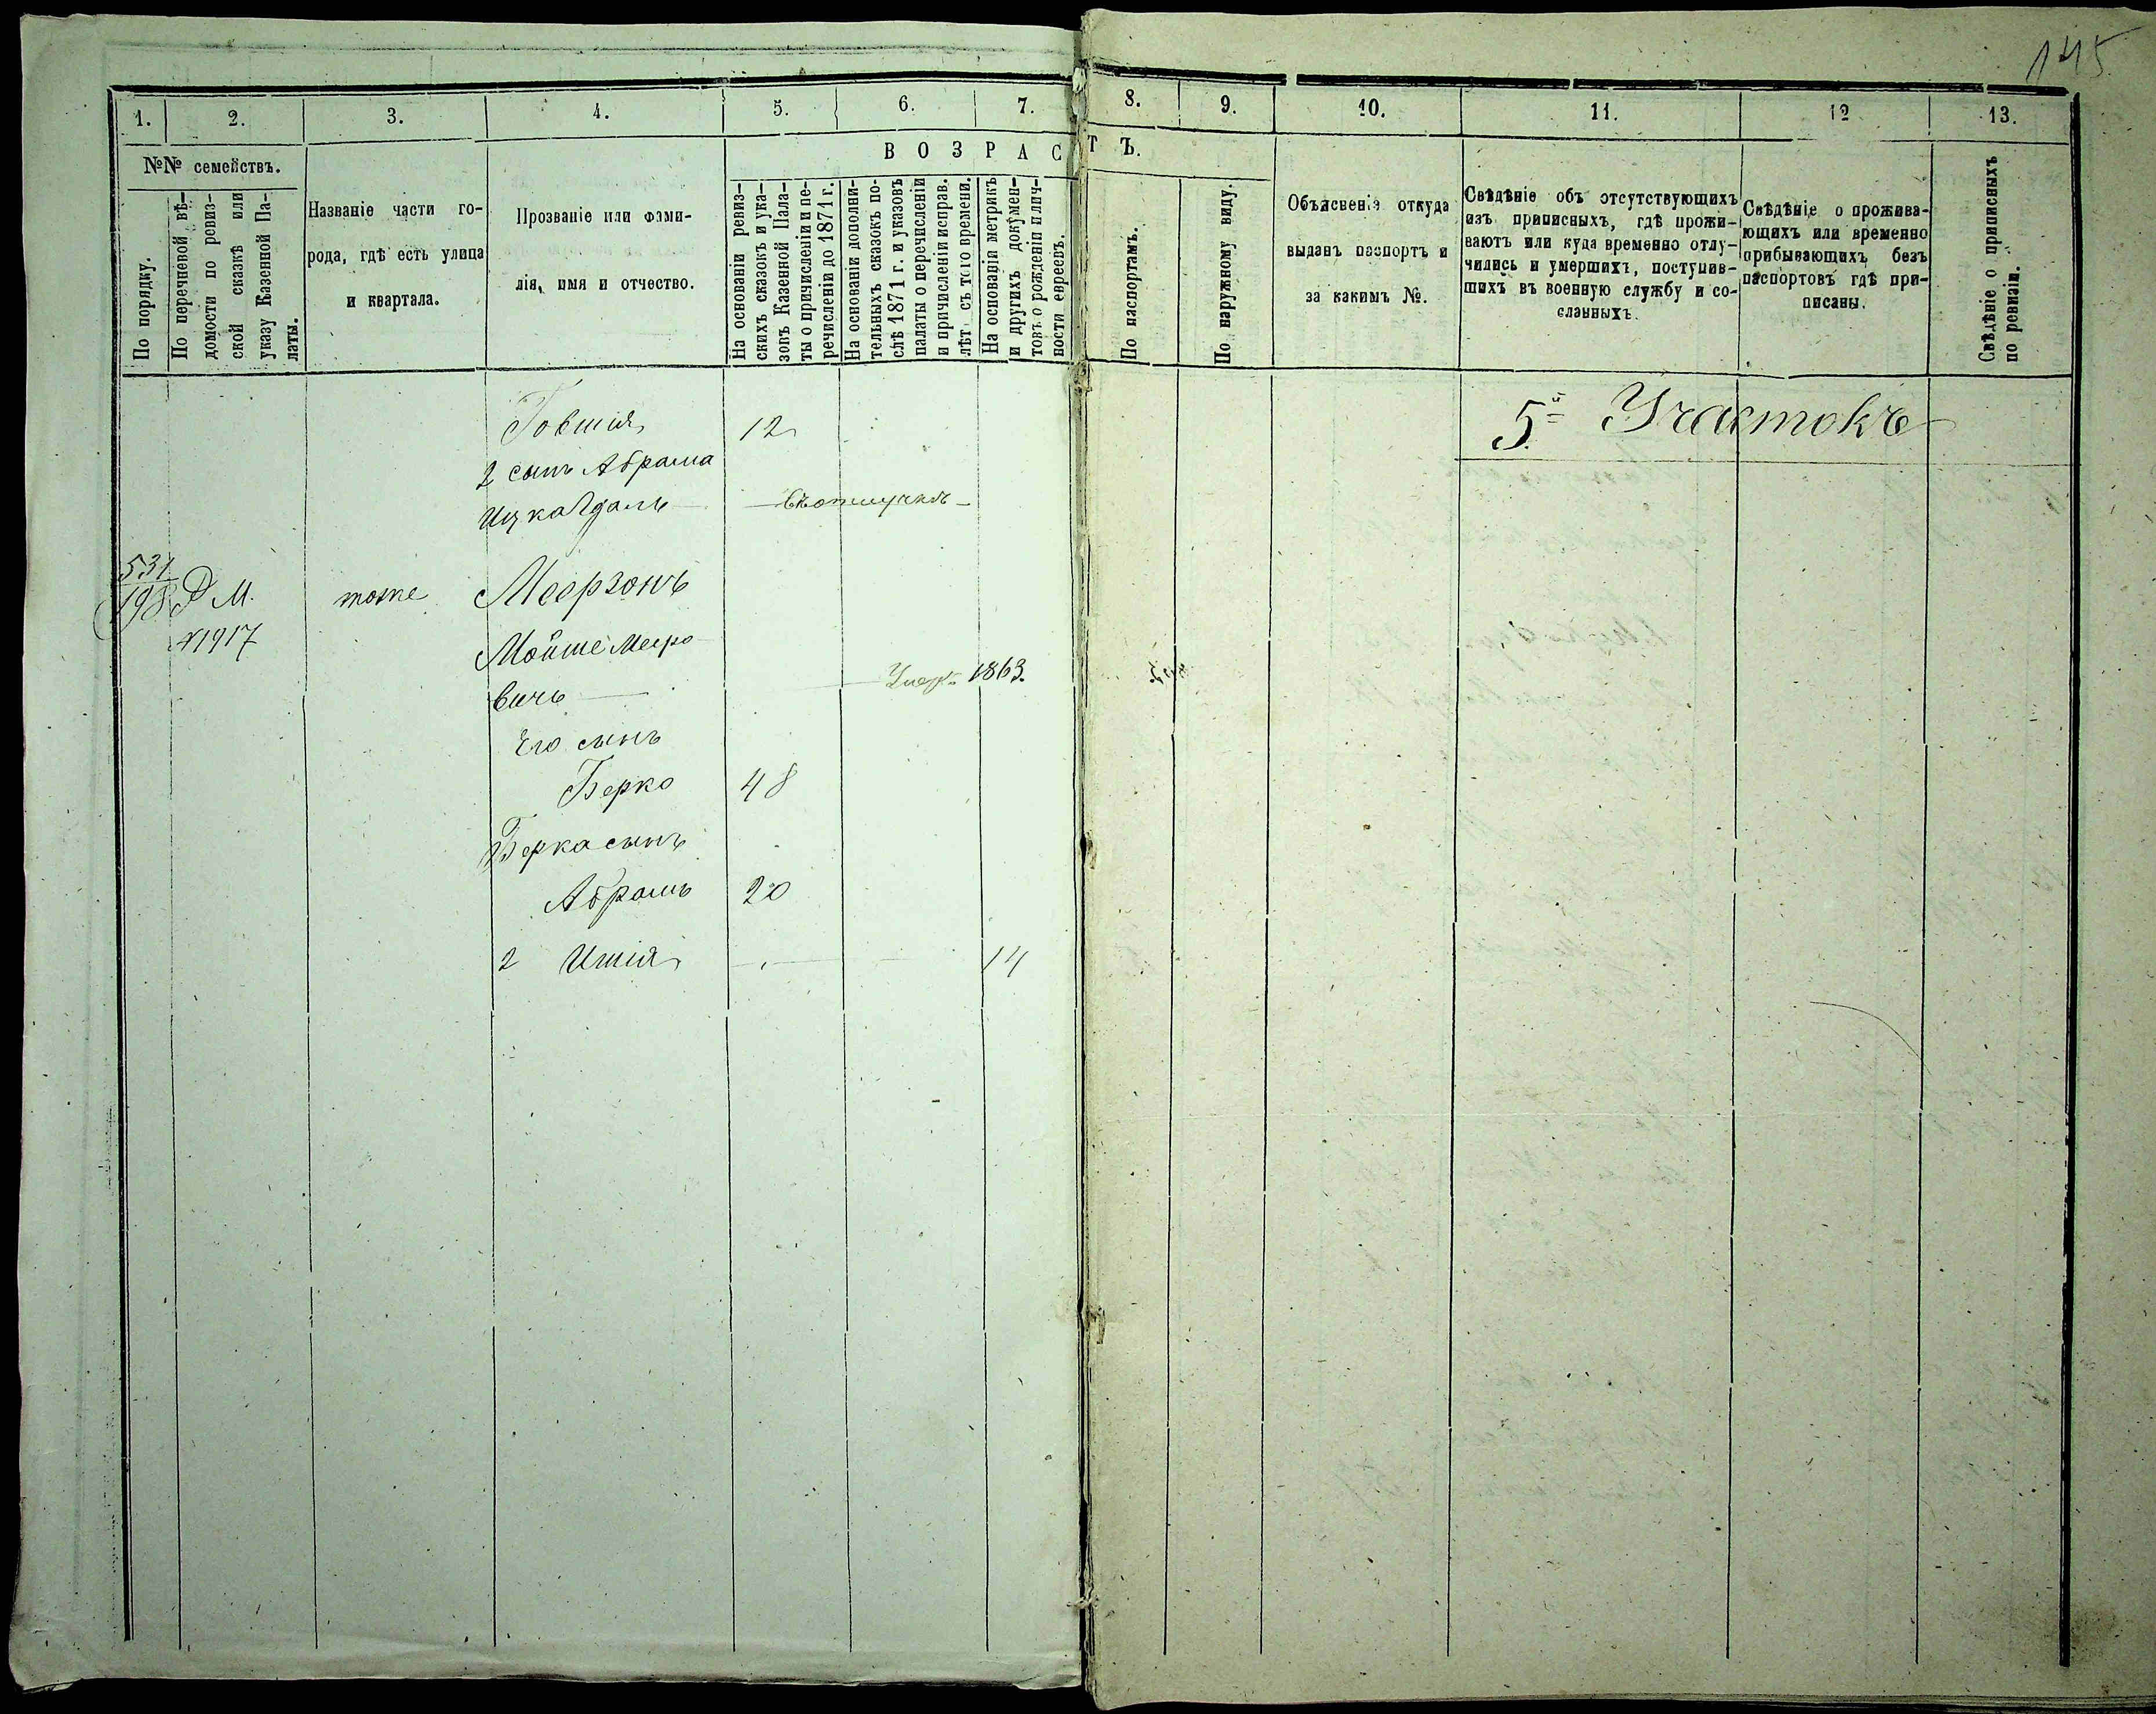 145
1. 2. 3. 4. 5. 6. 7. 8. 9. 10. 11. 12 13.
№№ семействъ.
ВОЗРАСТЪ.
По порядку.
По перечневой вѣ-
домости по ревиз-
ской сказкѣ или
указу Казенной Па-
латы.
Названіе части го-
рода, гдѣ есть улица
и квартала.
Прозваніе или фами-
лія, имя и отчество.
На основаніи ревиз-
скихъ сказокъ и ука-
зовъ Казенной Пала-
ты о причисленіи и пе-
речисленіи до 1871 г.
На основаніи дополни-
тельныхъ сказокъ по-
слѣ 1871 г. и указовъ
палаты о перечисленіи
и причисленіи исправ.
лѣтъ съ того времени.
На основаніи метрикъ
и другихъ докумен-
товъ о рожденіи и лич-
ности евреевъ.
По паспортамъ.
По наружному виду.
Объясненія откуда
выданъ паспортъ и
за какимъ №.
Свѣдѣніе объ отсутствующихъ
изъ приписныхъ, гдѣ прожи-
ваютъ или куда временно отлу-
чились и умершихъ, поступив-
шихъ въ военную службу и со-
сланныхъ.
Свѣдѣніе о прожива-
ющихъ или временно
прибывающихъ безъ
паспортовъ гдѣ при-
писаны.
Свѣдѣніе о приписныхъ
по ревизіи.
5й Участокъ
Говшія 12
2 сынъ Абрама
Ицка
531
198 Р М. тоже Меерзонъ
№1917
Мойше Мееро
вичъ Умер. 1863.
Его сынъ
Берко 48
Берка сынъ
Абрамъ 20
2 Ишія — — 14